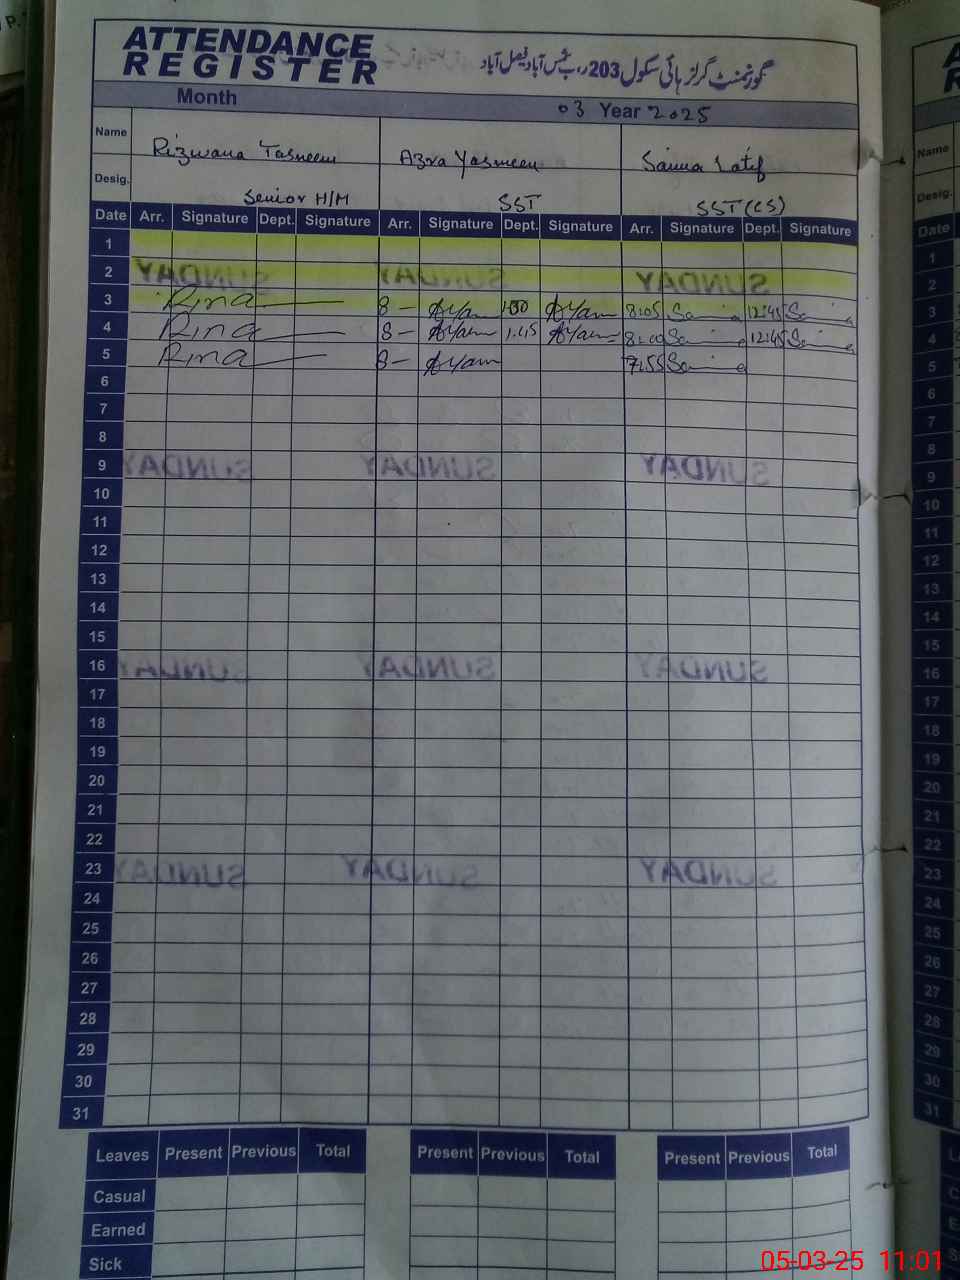 ATTENDANCE
REGISTER
گورنمنٹ گرلز ہائی سکول 203 ر۔ب شمس آباد فیصل آباد
Month 03 Year 2025
Name Rizwana Tasneem Azra Yasmeen Saima Latif
Desig. Senior H/M SST SST (CS)
Date Arr. Signature Dept. Signature Arr. Signature Dept. Signature Arr. Signature Dept. Signature
1
2 SUNDAY SUNDAY SUNDAY
3 8 - 1:00 8:05 12:45
4 8 - 1:15 8:00 12:45
5 8 - 7:55
6
7
8
9 SUNDAY SUNDAY SUNDAY
10
11
12
13
14
15
16 SUNDAY SUNDAY SUNDAY
17
18
19
20
21
22
23 SUNDAY SUNDAY SUNDAY
24
25
26
27
28
29
30
31
Leaves Present Previous Total Present Previous Total Present Previous Total
Casual
Earned
Sick
05-03-25 11:01